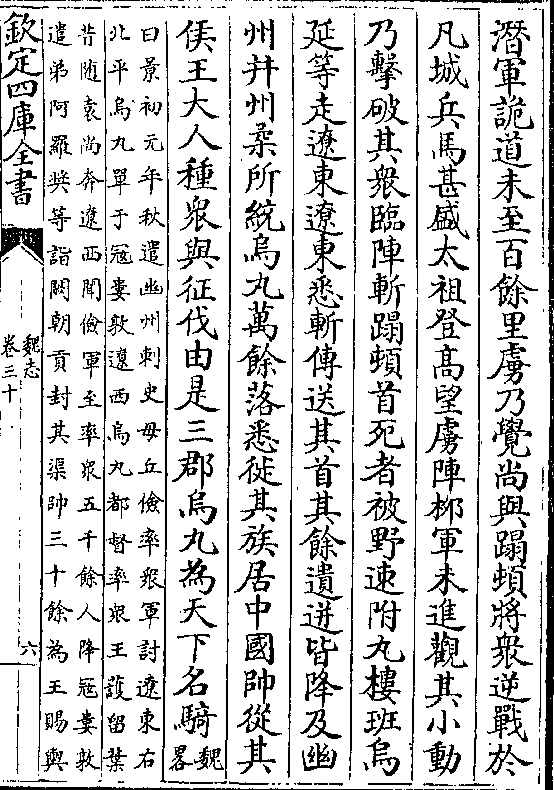 潛軍詭道未至百餘里虜乃覺尚與蹋頓將衆逆戰於
凡城兵馬甚盛太祖登高望虜陣栁軍未進觀其小動
乃擊破其衆臨陣斬蹋頓首死者被野速附丸樓班烏
延等走遼東遼東悉斬傳送其首其餘遺迸皆降及幽
州并州柔所統烏丸萬餘落悉徙其族居中國帥從其
侯王大人種衆與征伐由是三郡烏丸為天下名騎魏畧
曰景初元年秋遣幽州刺史毋丘儉率衆軍討遼東右
北平烏丸單于寇婁敦遼西烏丸都督率衆王護留葉
昔隨袁尚奔遼西聞儉軍至率衆五千餘人降寇婁敦
遣弟阿羅奬等詣闕朝貢封其渠帥三十餘為王賜輿
欽定四庫全書
魏志
卷三十
六